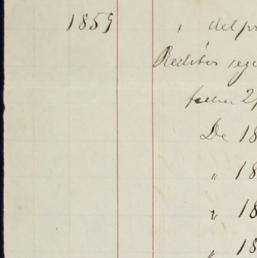 1859 , del pr
Reditos seg
fecha 2
De 18
" 18
" 18
" 18